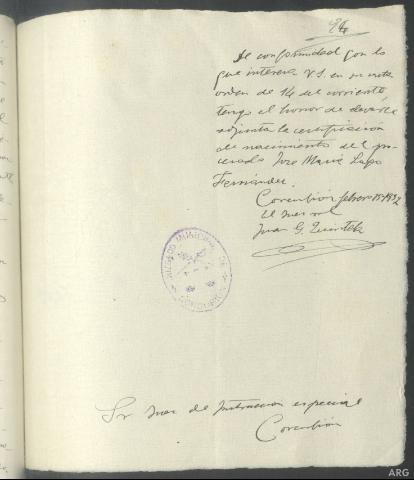 De conformidad con lo
que interesa V.S. en su atta
orden de 14 del corriente
tengo el honor de
adjunta la certificacion
de nacimiento del pro-
cesado Jose Maria Lago
Fernández.
Corcubión febrero 15-1932
El Juez ml
Juan G.
JUZGADO MUNICIPAL DE
CORCUBION
Sr Juez de Instruccion especial
Corcubión
ARG